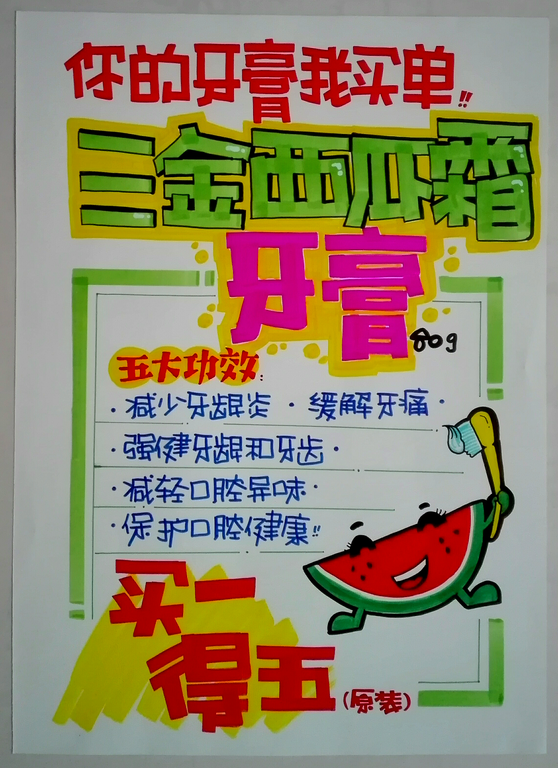 你的牙膏我买单!!
三金西瓜霜
牙膏80g
五大功效:
·减少牙龈炎 ·缓解牙痛·
·强健牙龈和牙齿·
·减轻口腔异味·
·保护口腔健康!!
买一
得五(原装)